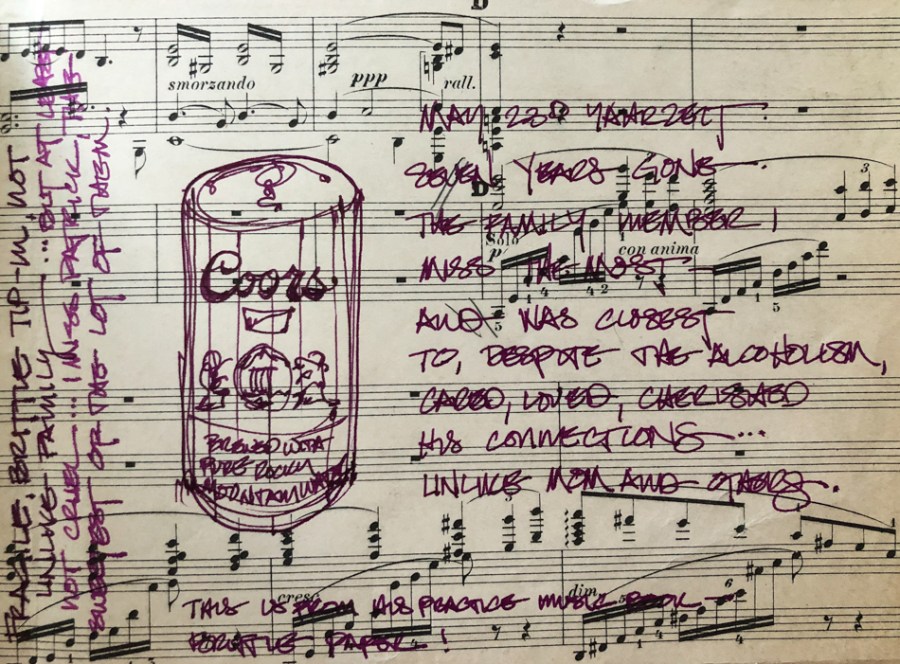 smorzando
ppp
rall.
MAY 23RD YAHRZEIT
SEVEN YEARS GONE —
THE FAMILY MEMBER I
Solo
p
con anima
MISS THE MOST —
AND WAS CLOSEST
TO, DESPITE THE ALCOHOLISM,
CARED, LOVED, CHERISHED
HIS CONNECTIONS...
UNLIKE MOM AND OTHERS.
Coors
BREWED WITH
PURE ROCKY
MOUNTAIN WATER
cresc
dim.
THIS IS FROM HIS PRACTICE MUSIC BOOK —
BRITTLE PAPER!
FRAGILE, BRITTLE TIP-IN, NOT
UNLIKE FAMILY ... BUT AT LEAST
NOT CRUEL ... I MISS PATRICK, THE
SWEETEST OF THE LOT OF THEM.